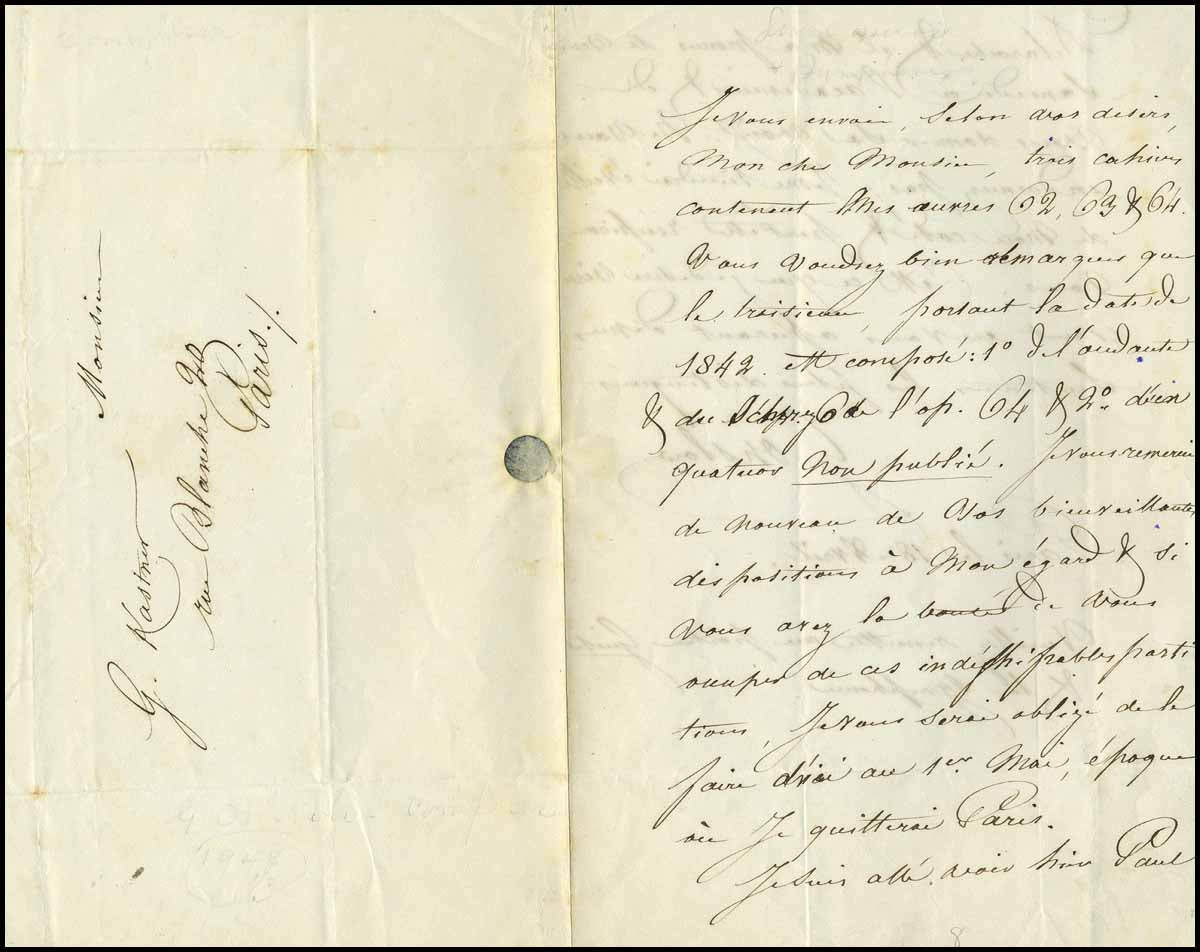 Monsieur
G. Kastner
rue Blanche 20
Paris./.
Je vous envoie, selon vos désirs,
Mon cher Monsieur, trois cahiers
contenent Mes œuvres 62, 63 & 64.
Vous voudrez bien remarquer que
le troisième, portant la date de
1842. est composé: 1º de l'andante
& du Scherzo de l'op. 64 & 2º d'un
quatuor non publié. Je vous remercie
de nouveau de vos bienveillantes
dispositions à Mon égard & si
vous avez la bonté de vous
occuper de ces indéchifrables parti
tions, Je vous serai obligé de le
faire d'ici au 1er. Mai, époque
où Je quitterai Paris.
Je suis allé voir hier Paul